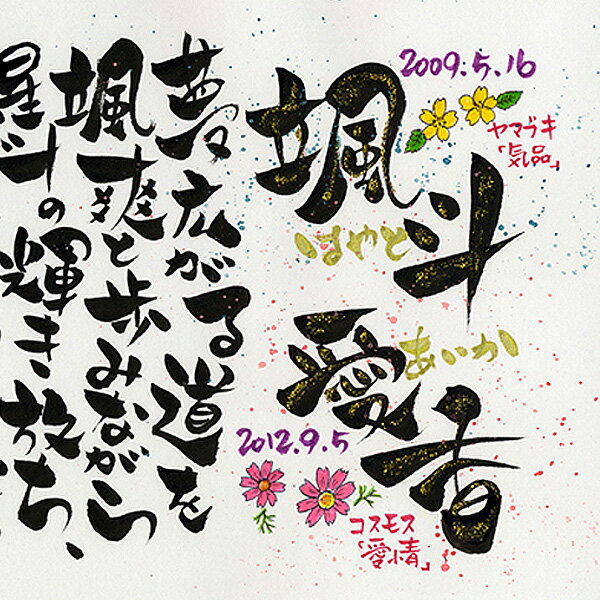 2009.5.16
ヤマブキ
「気品」
颯斗
はやと
愛香
あいか
2012.9.5
コスモス
「愛情」
夢広がる道を
颯爽と歩みながら
星斗の輝き放ち、